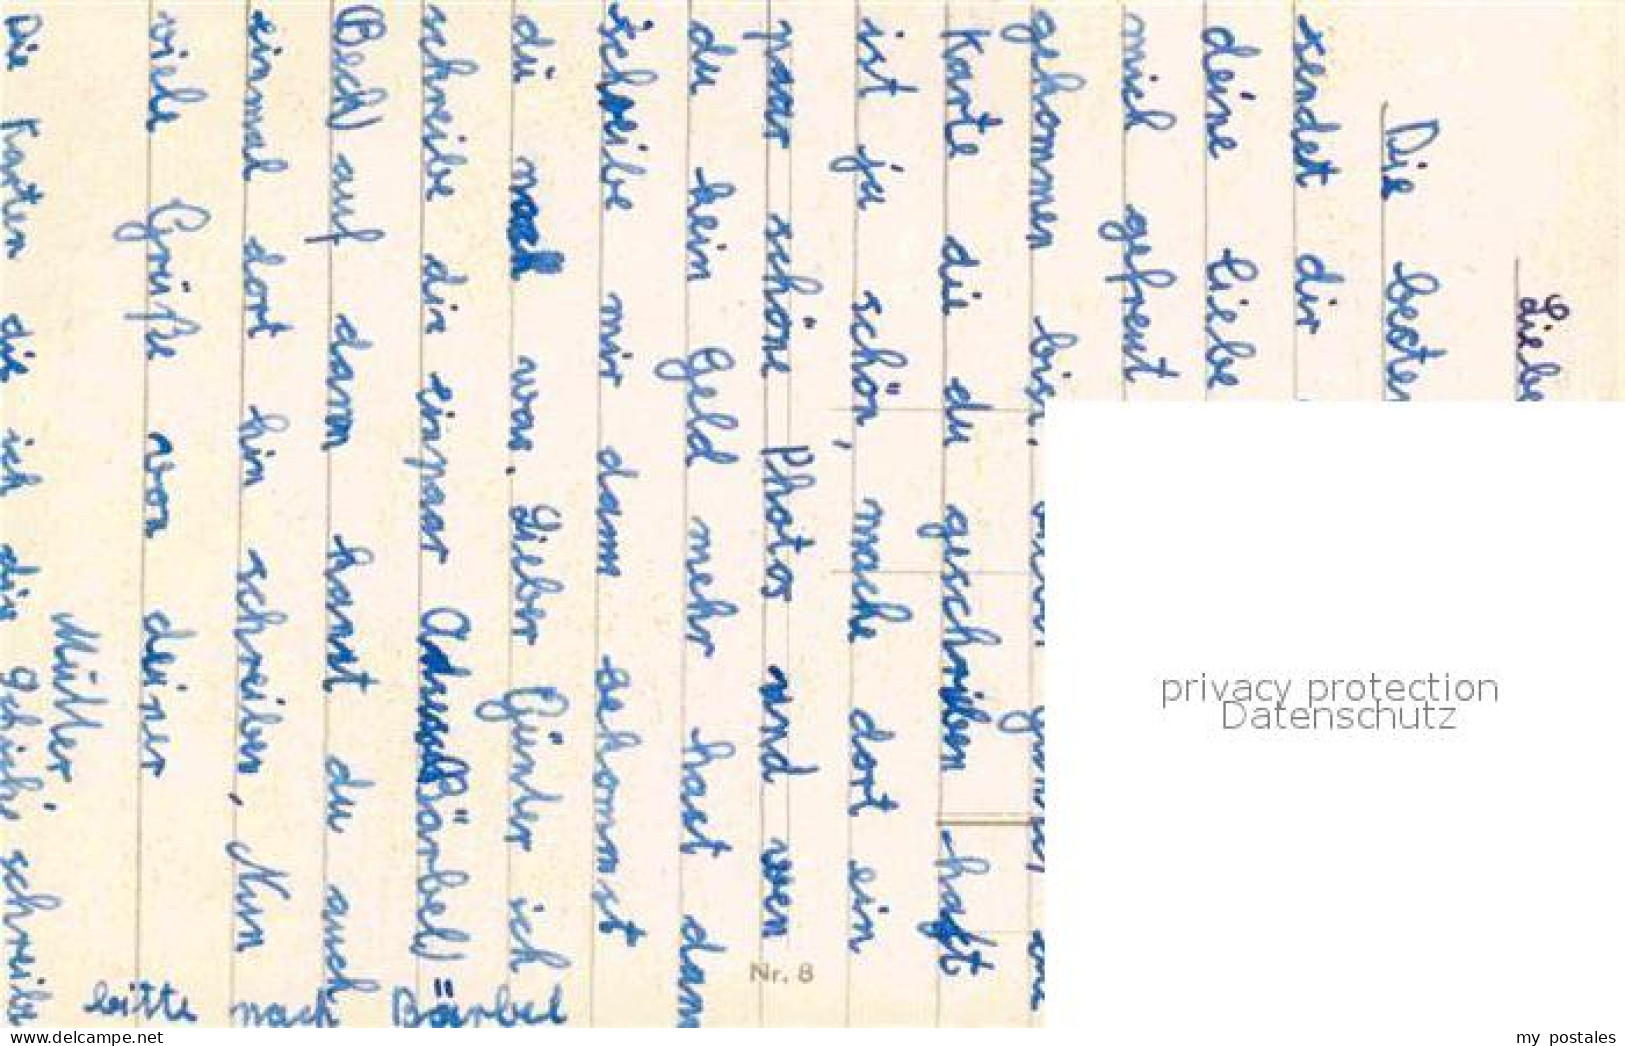 Liebe
Die besten
sendet dir
deine liebe
mich gefreut
gekommen bist,
Karte die du geschrieben hast
ist ja schön, mache dort ein
paar schöne Photos und wen
du kein Geld mehr hast dann
schreibe mir dann bekommst
du nach was. Lieber Günter ich
schreibe dir einpaar "Bärbel"
(Beck) auf dann hast du auch
einmal dort hin schreiben, Nun
viele Grüße von deiner
Mutter
Die Karten die ich dir schicke schreibe
bitte nach Bärbel
Nr. 8
privacy protection
Datenschutz
www.delcampe.net
my postales